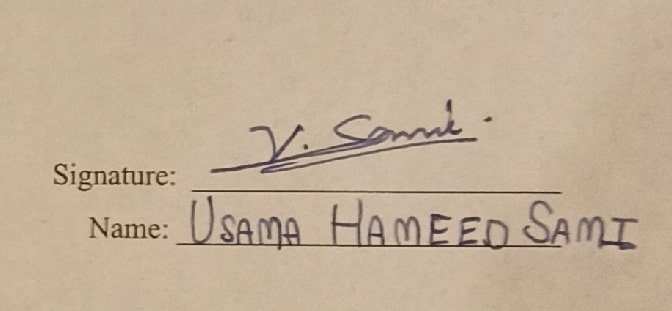 Signature: V. Sami.
Name: USAMA HAMEED SAMI